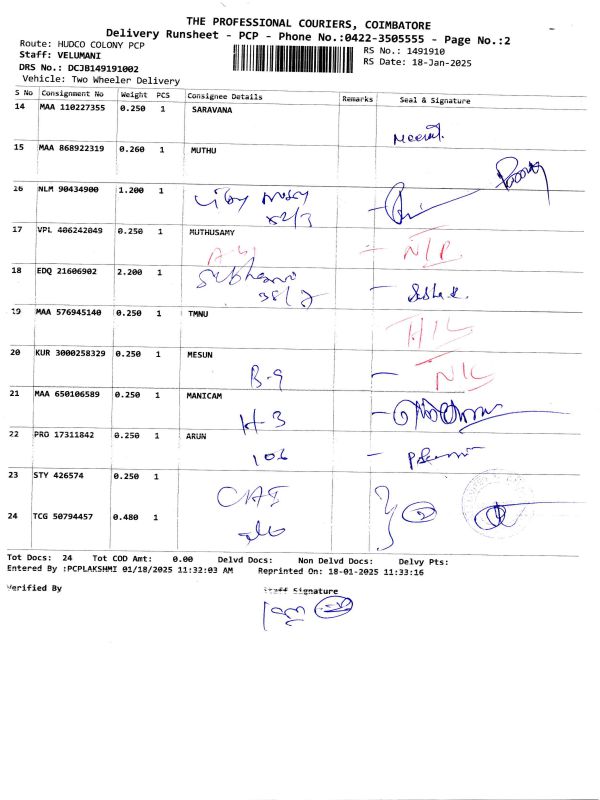 THE PROFESSIONAL COURIERS, COIMBATORE
Delivery Runsheet - PCP - Phone No.:0422-3505555 - Page No.:2
Route: HUDCO COLONY PCP
RS No.: 1491910
Staff: VELUMANI
RS Date: 18-Jan-2025
DRS No.: DCJB149191002
Vehicle: Two Wheeler Delivery
S No Consignment No Weight PCS Consignee Details Remarks Seal & Signature
14 MAA 110227355 0.250 1 SARAVANA
15 MAA 868922319 0.260 1 MUTHU
16 NLM 90434900 1.200 1
x2/3
17 VPL 406242049 0.250 1 MUTHUSAMY
N/P
18 EDQ 21606902 2.200 1
19 MAA 576945140 0.250 1 TMNU
H/L
20 KUR 3000258329 0.250 1 MESUN
B-9 N/L
21 MAA 650106589 0.250 1 MANICAM
H-3
22 PRO 17311842 0.250 1 ARUN
106
23 STY 426574 0.250 1
24 TCG 50794457 0.480 1
Tot Docs: 24 Tot COD Amt: 0.00 Delvd Docs: Non Delvd Docs: Delvy Pts:
Entered By :PCPLAKSHMI 01/18/2025 11:32:03 AM Reprinted On: 18-01-2025 11:33:16
Verified By Staff Signature